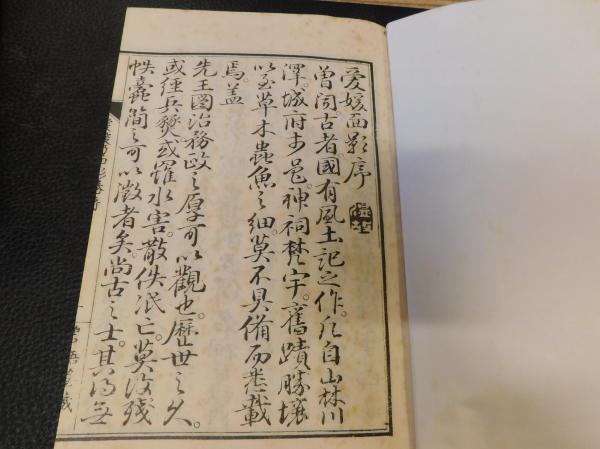 愛媛面影序
曽聞古者國有風土記之作。凡自山林川
澤城府市邑神祠梵宇。舊蹟勝壤
以至草木蟲魚之細。莫不具備而悉載
焉。蓋
先王圖治務政之厚可以觀也。歴世之久。
或経兵燹或罹水害。散佚泯亡。莫没殘
帙蠹簡之可以徴者矣。尚古之士。其得無